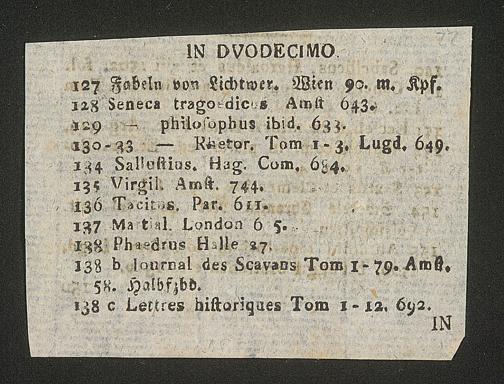 IN DVODECIMO
127 Fabeln von Lichtwer. Wien 90. m. Kpf.
128 Seneca tragoedicus Amſt 643.
129 — philoſophus ibid. 633.
130-33 — Rhetor. Tom 1-3. Lugd. 649.
134 Salluſtius. Hag. Com. 684.
135 Virgil. Amſt. 744.
136 Tacitus. Par. 611.
137 Martial. London
138 Phaedrus Halle 27.
138 b Journal des Scavans Tom 1-79. Amſt.
58. Halbfzbd.
138 c Lettres hiſtoriques Tom 1-12. 692.
IN